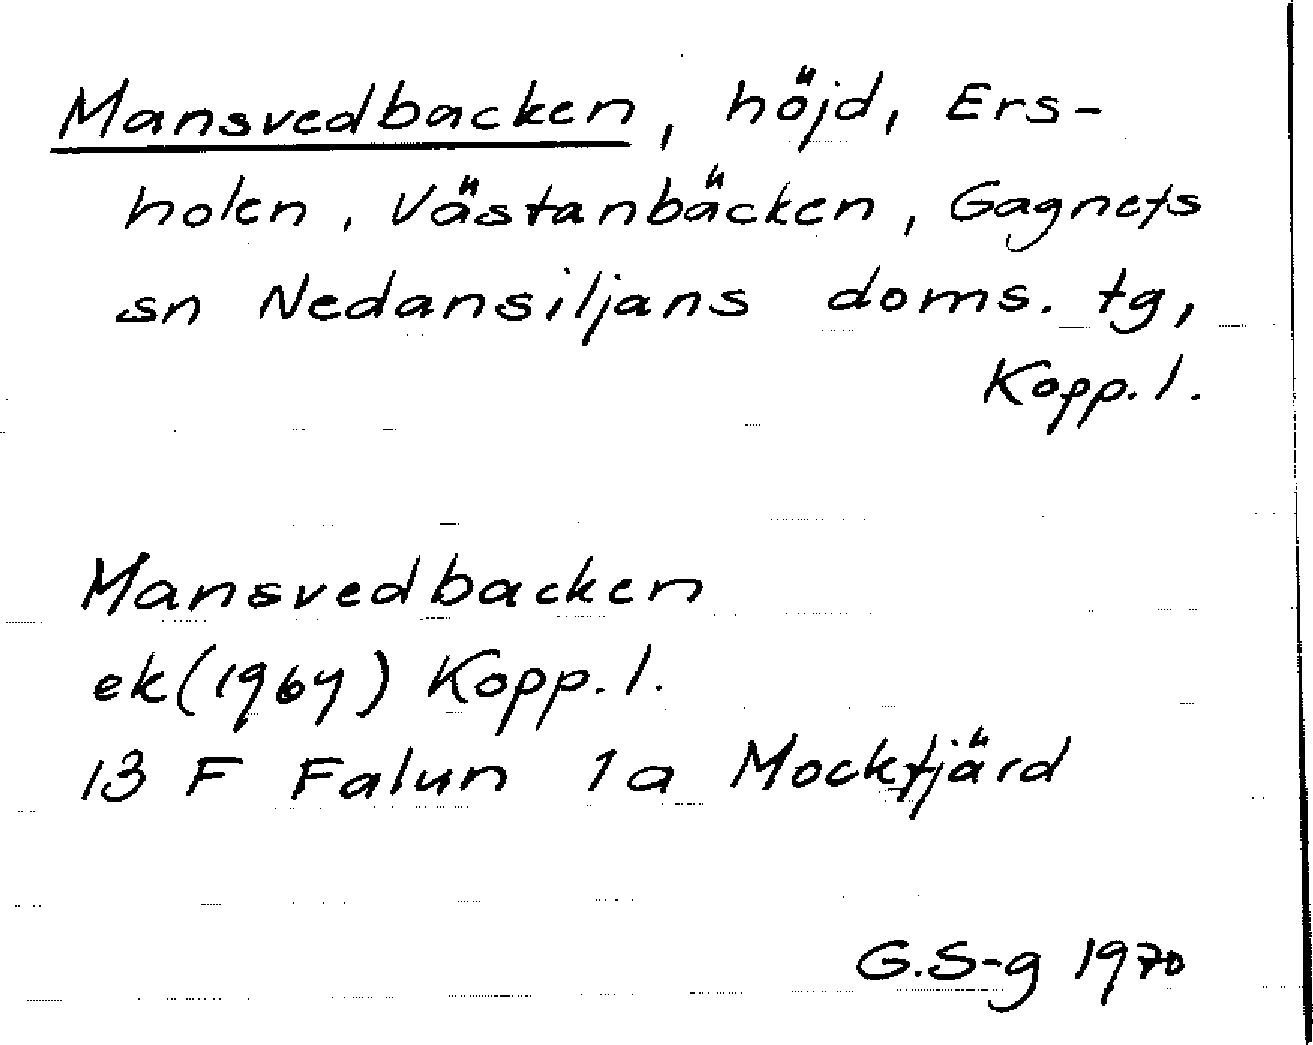 Mansvedbacken, höjd, Ers-
holen, Västanbäcken, Gagnefs
sn Nedansiljans doms. tg,
Kopp. l.
Mansvedbacken
ek (1964) Kopp. l.
13 F Falun 1a Mockfjärd
G.S-g 1970